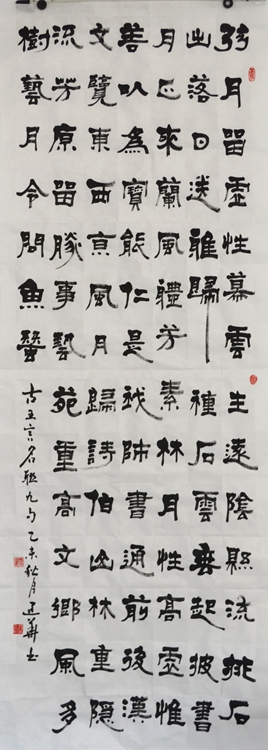 弦月留虛性暮雲生遠陰縣流挑石
出落日送雅歸種石雲兼起披書
月正來蘭風禮芳素林月性高虛惟
善以為寶能仁是我師書通前後漢
文覽東西京風月歸詩伯山林重隱
流芳原留勝事藝苑重高文鄉風多
樹藝月令問魚蠶
古五言名聯九句乙未秋月建華书